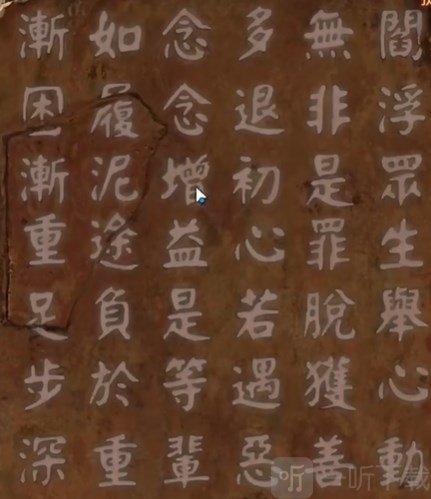 閻浮眾生舉心動
無非是罪脫獲善
多退初心若遇惡
念念增益是等輩
如履泥途負於重
漸困漸重足步深
听 一听下载